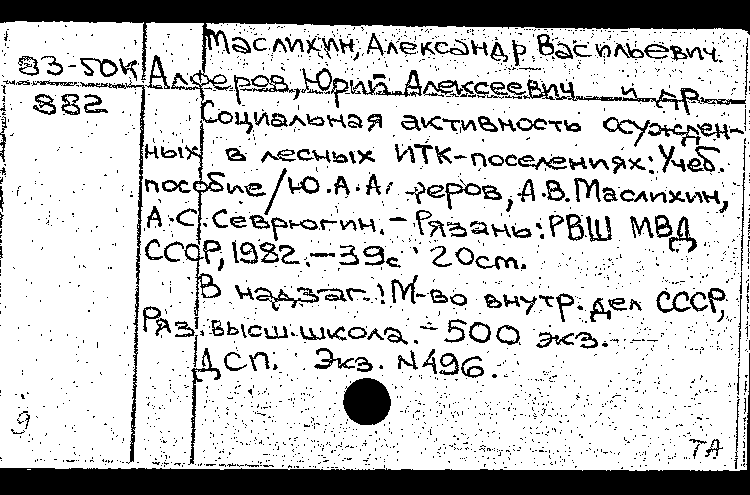 Маслихин, Александр Васильевич.
83-50К Алферов, Юрий Алексеевич и др
882 Социальная активность осужден-
ных в лесных ИТК-поселениях: Учеб.
пособие / Ю.А. Алферов, А.В. Маслихин,
А.С. Севрюгин. - Рязань: РВШ МВД
СССР, 1982. - 39с 20см.
В надзаг.: М-во внутр. дел СССР,
Ряз. высш. школа. - 500 экз. -
ДСП. Экз. N496.
9
ТА